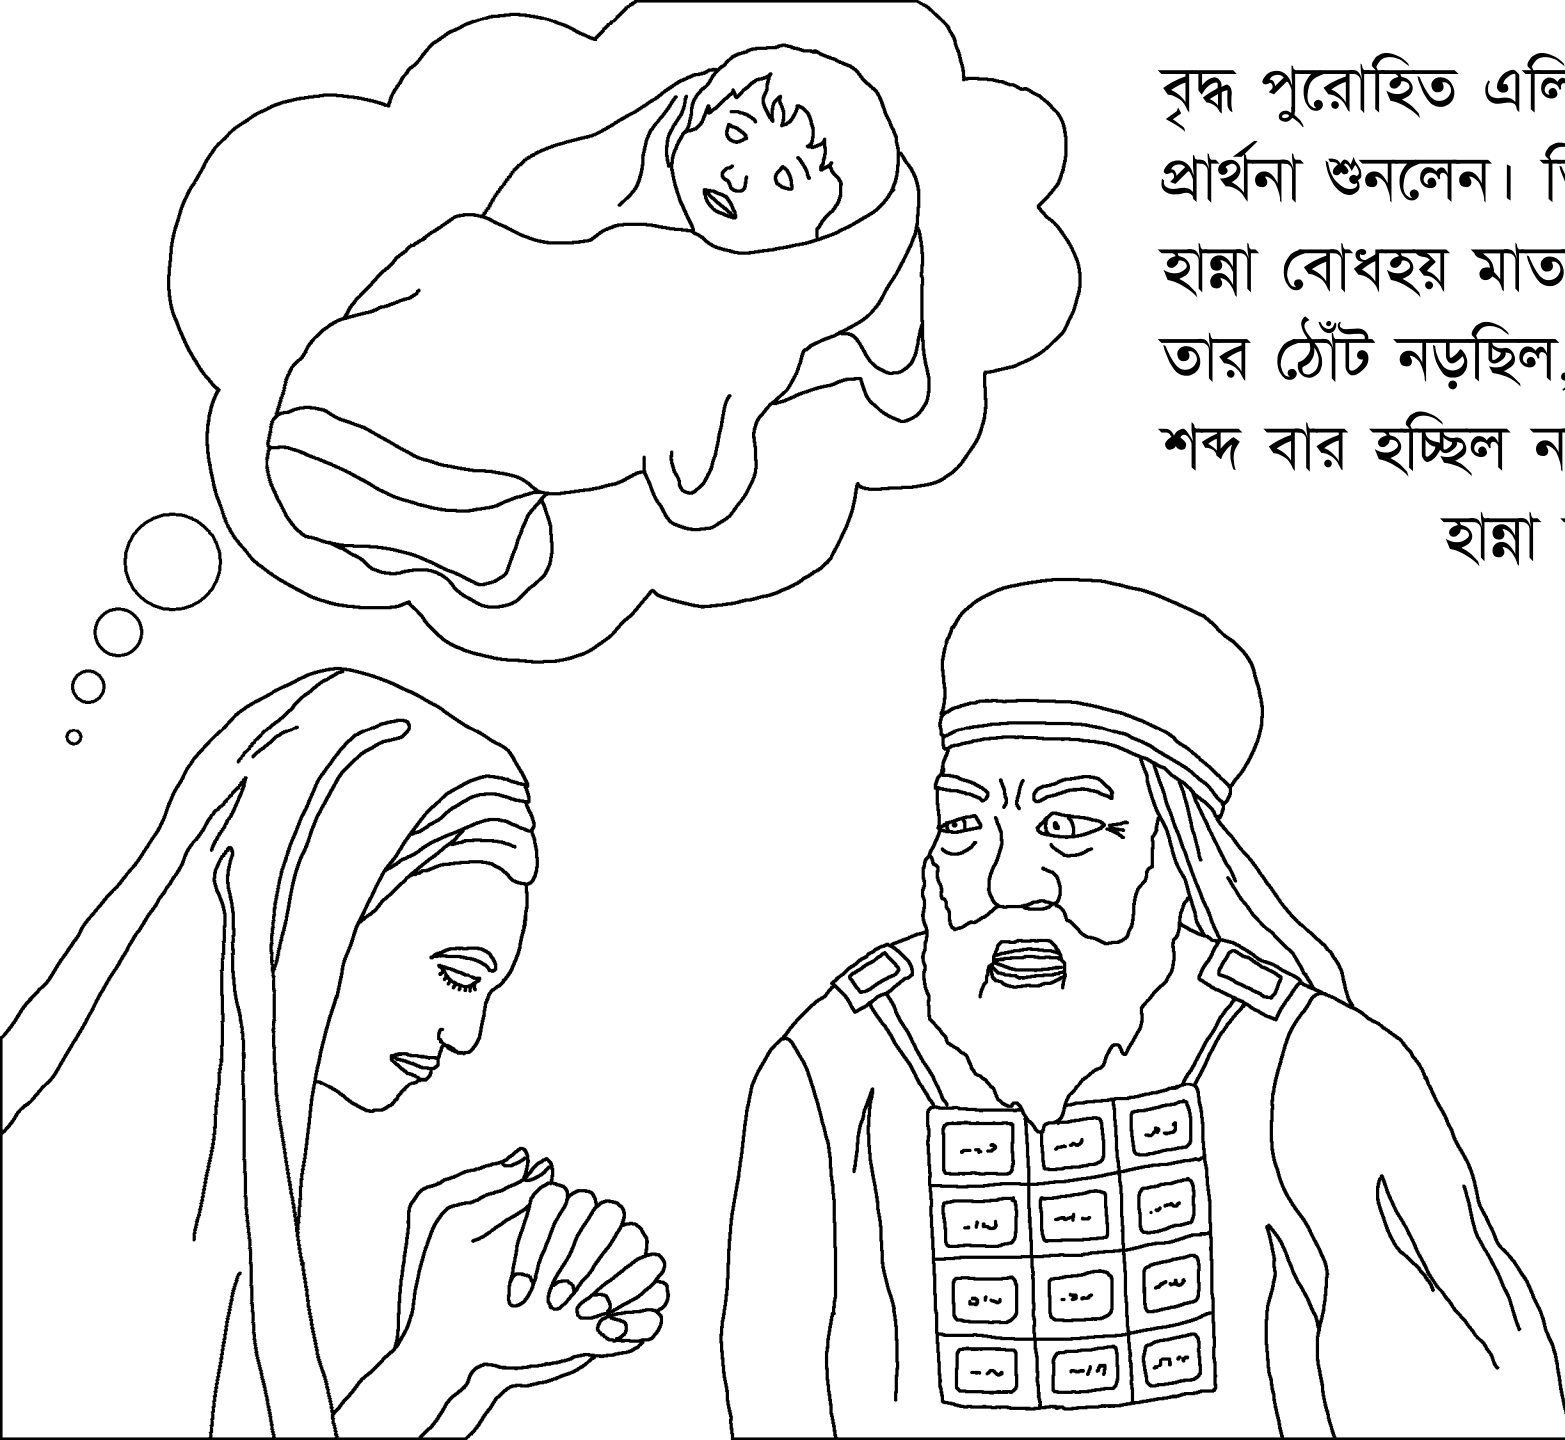 বৃদ্ধ পুরোহিত
প্রার্থনা শুনলেন।
হান্না বোধহয়
তার ঠোঁট নড়ছিল,
শব্দ বার হচ্ছিল
হান্না